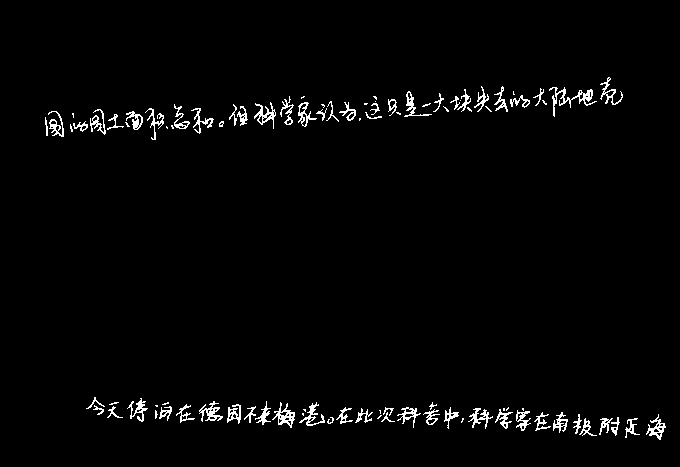 国的国土面积总和。但科学家认为,这只是一大块失去的大陆地壳
今天停泊在德国不来梅港。在此次科考中,科学家在南极附近海